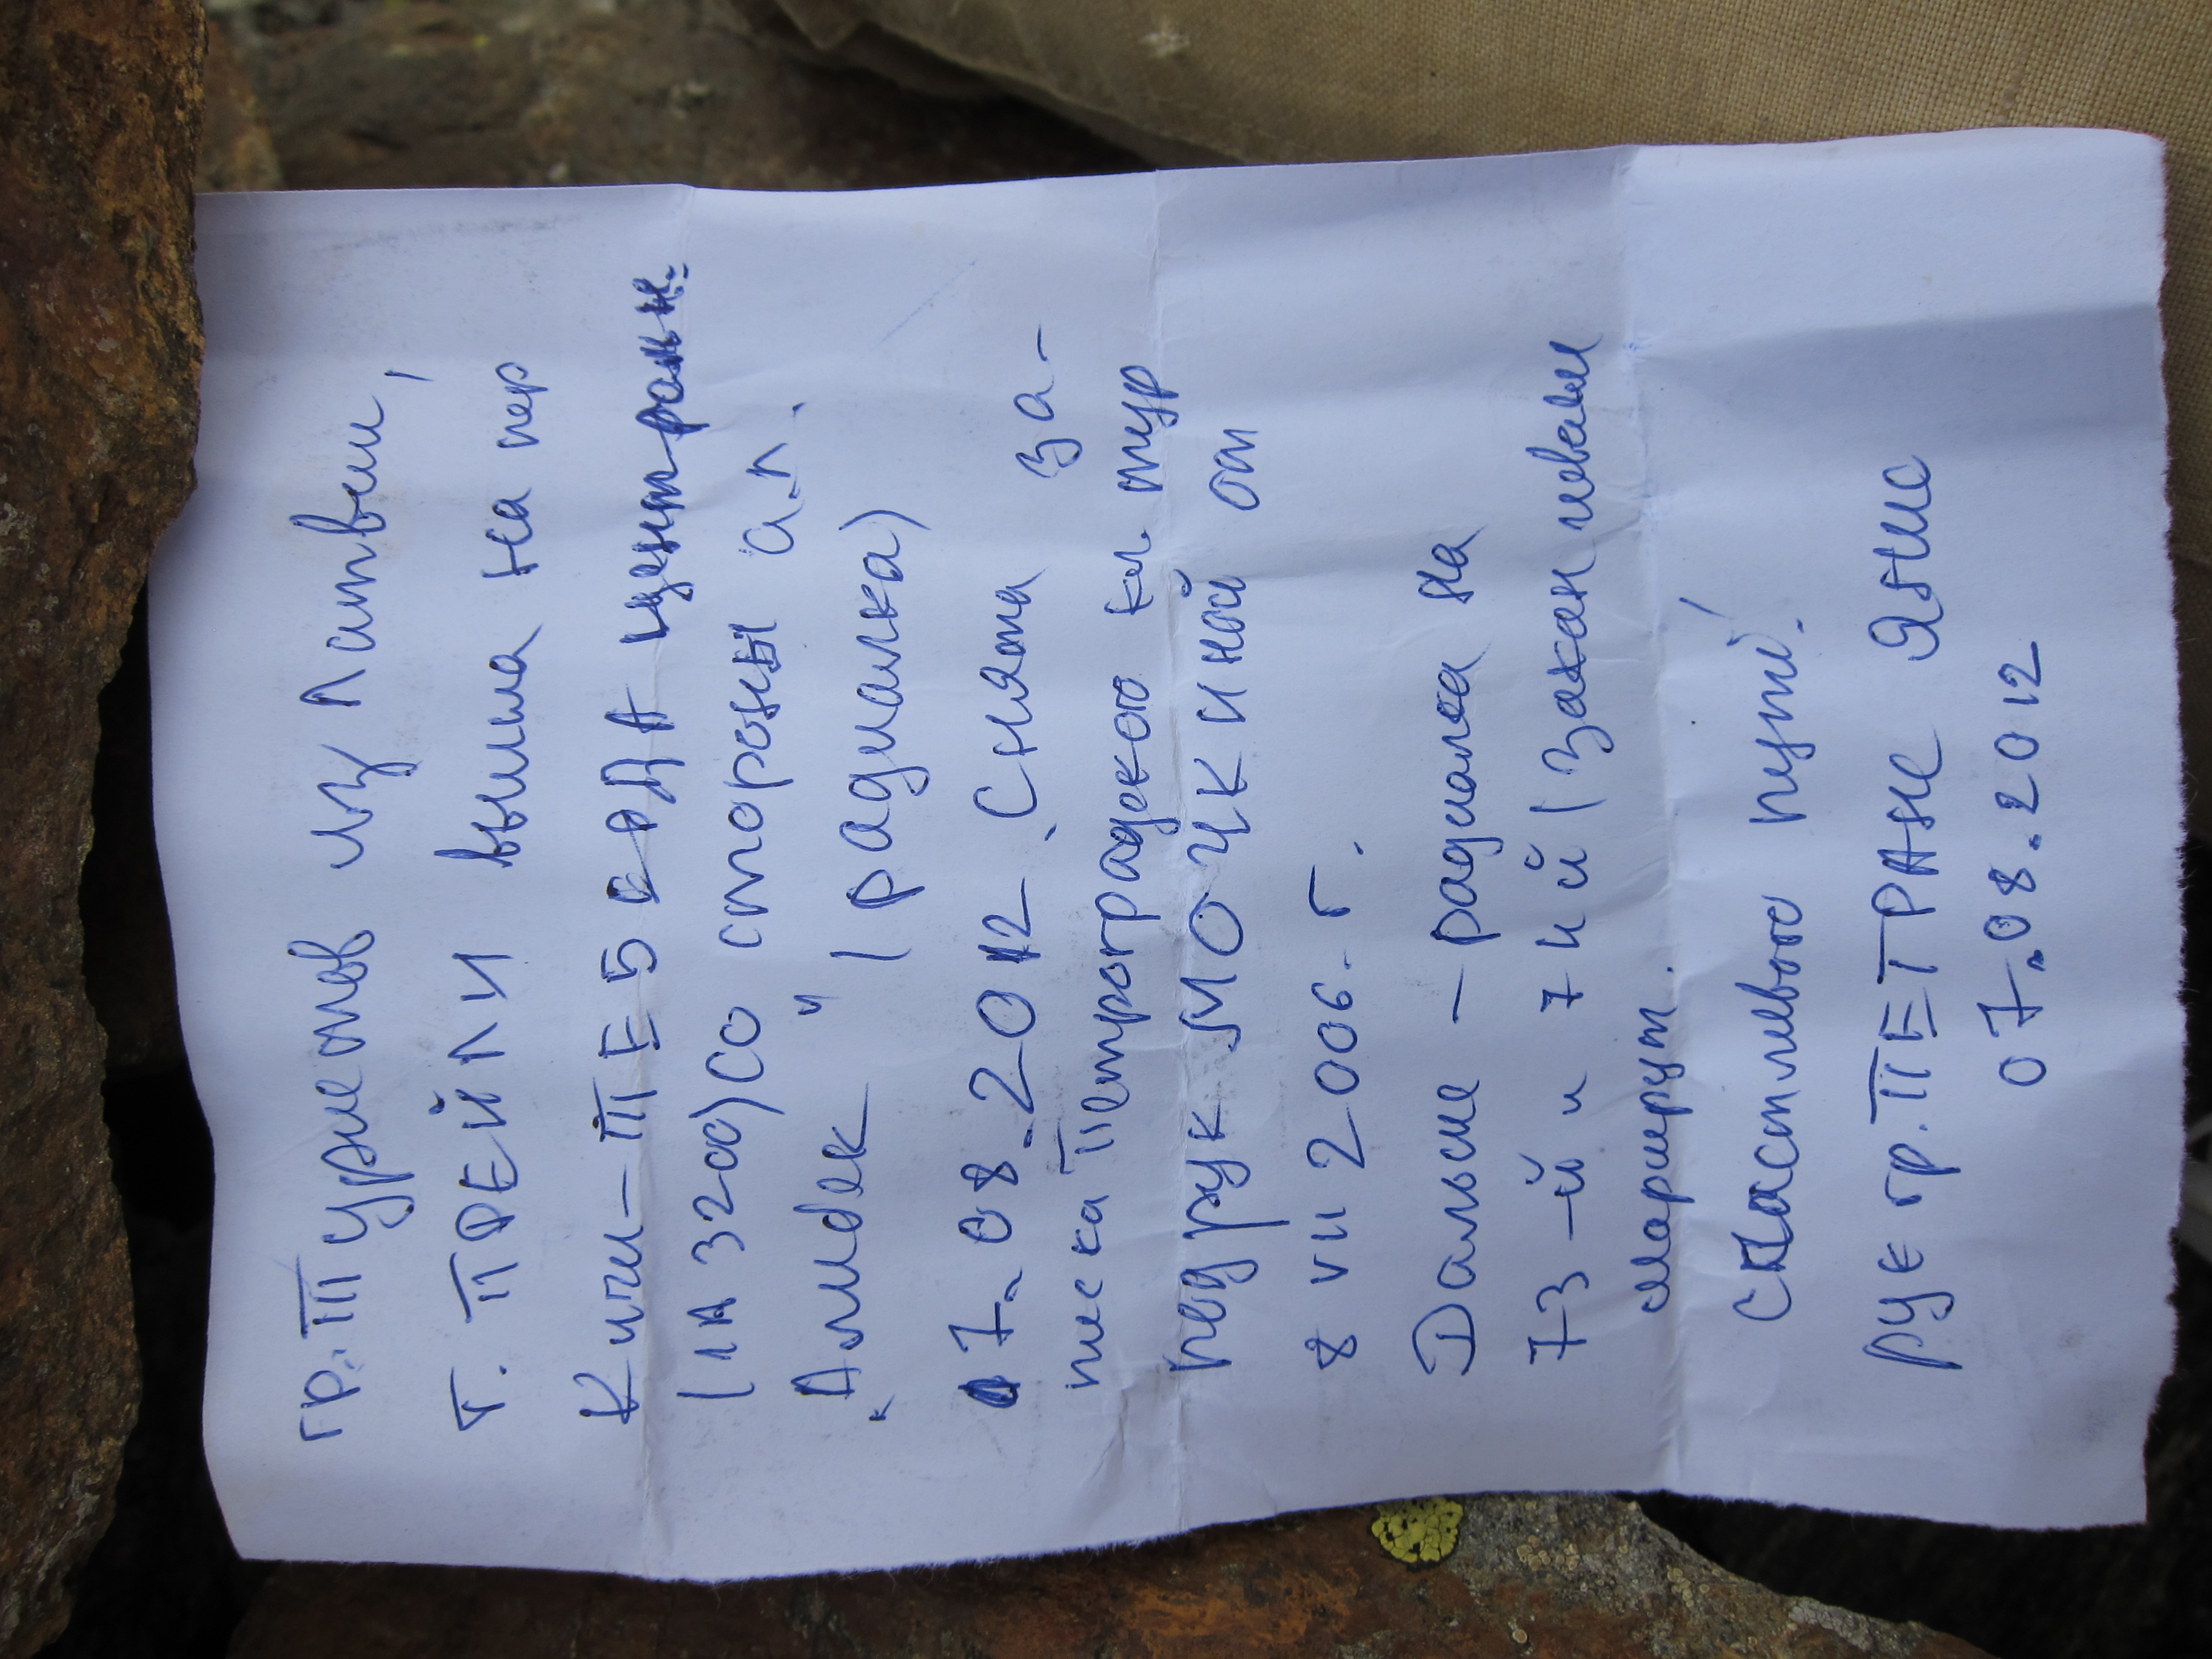 гр. Туристов из Латвии,
г. ТРЕЙЛИ вышла на пер
Кичи-ТЕБЕРДА централн.
(1А 3200) со стороны а.л.
"Алибек" (радиалка)
07.08.2012. Снята за-
писка Петроградского кл тур
под рук МОЧКИНОЙ от
8 VII 2006 г.
Дальше - радиалка на
73-й и 7 ний (заканчиваем
маршрут.
Счастливого пути!
рук гр. ПЕТРАНЕ Янис
07.08.2012